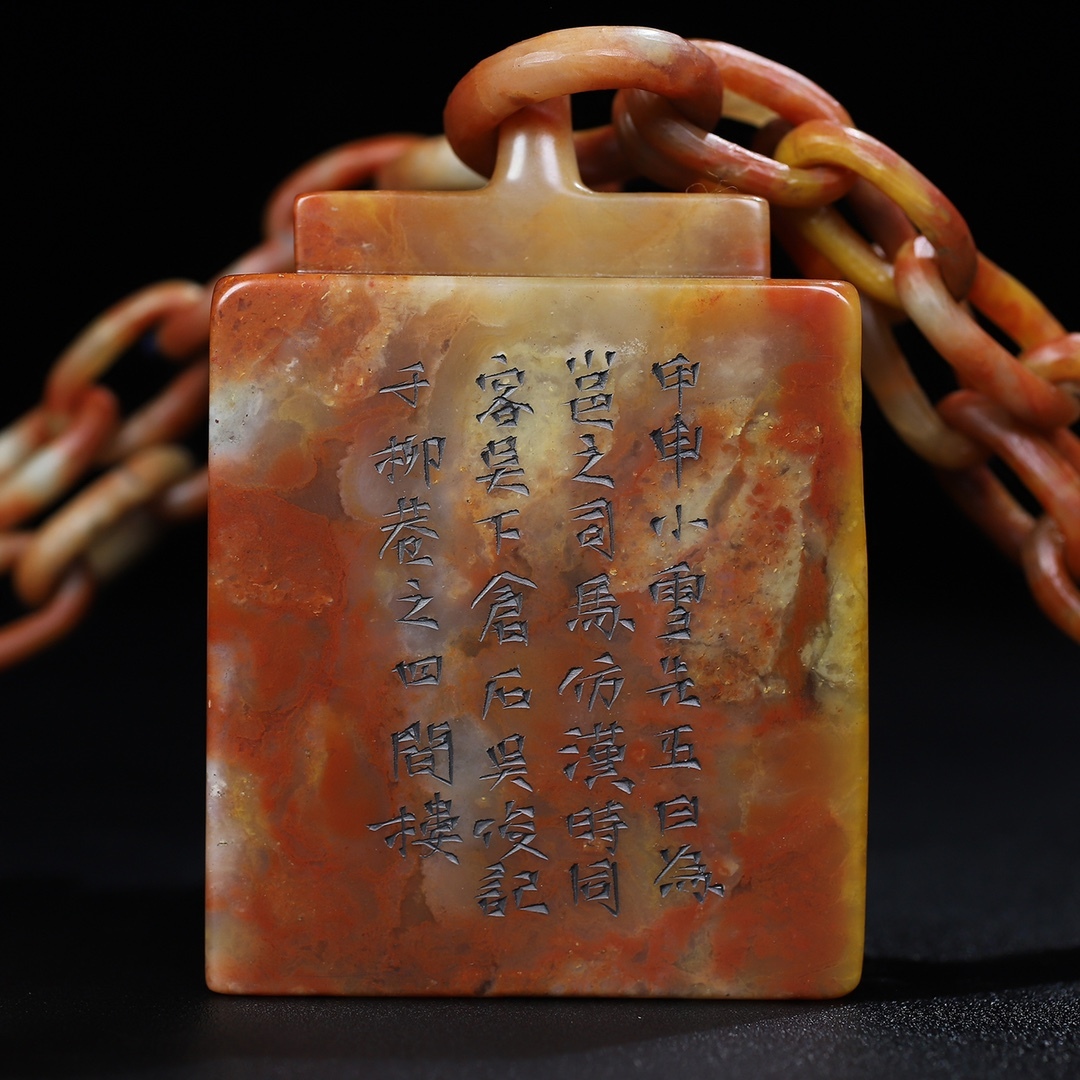 甲申小雪先五日為
邕之司馬仿漢時同
客吳下倉石吳俊記
于柳巷之四間樓